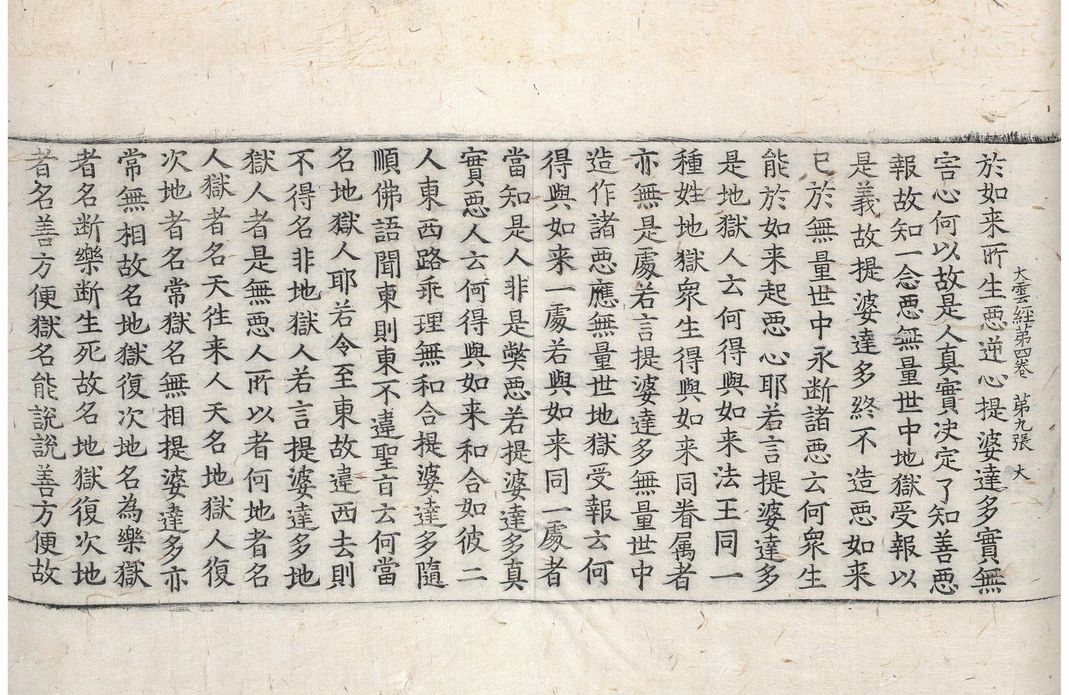 大雲經苐四卷　苐九張　大
於如来所生惡逆心提婆達多實無
害心何以故是人真實決定了知善惡
報故知一念惡無量世中地獄受報以
是義故提婆達多終不造惡如来
已於無量世中永断諸惡云何衆生
能於如来起惡心耶若言提婆達多
是地獄人云何得與如来法王同一
種姓地獄衆生得與如来同眷属者
亦無是處若言提婆達多無量世中
造作諸惡應無量世地獄受報云何
得與如来一處若與如来同一處者
當知是人非是弊惡若提婆達多真
實惡人云何得與如来和合如彼二
人東西路乖理無和合提婆達多隨
順佛語聞東則東不違聖言云何當
名地獄人耶若令至東故違西去則
不得名非地獄人若言提婆達多地
獄人者是無惡人所以者何地者名
人獄者名天徃来人天名地獄人復
次地者名常獄名無相提婆達多亦
常無相故名地獄復次地名為樂獄
者名断樂断生死故名地獄復次地
者名善方便獄名能說說善方便故